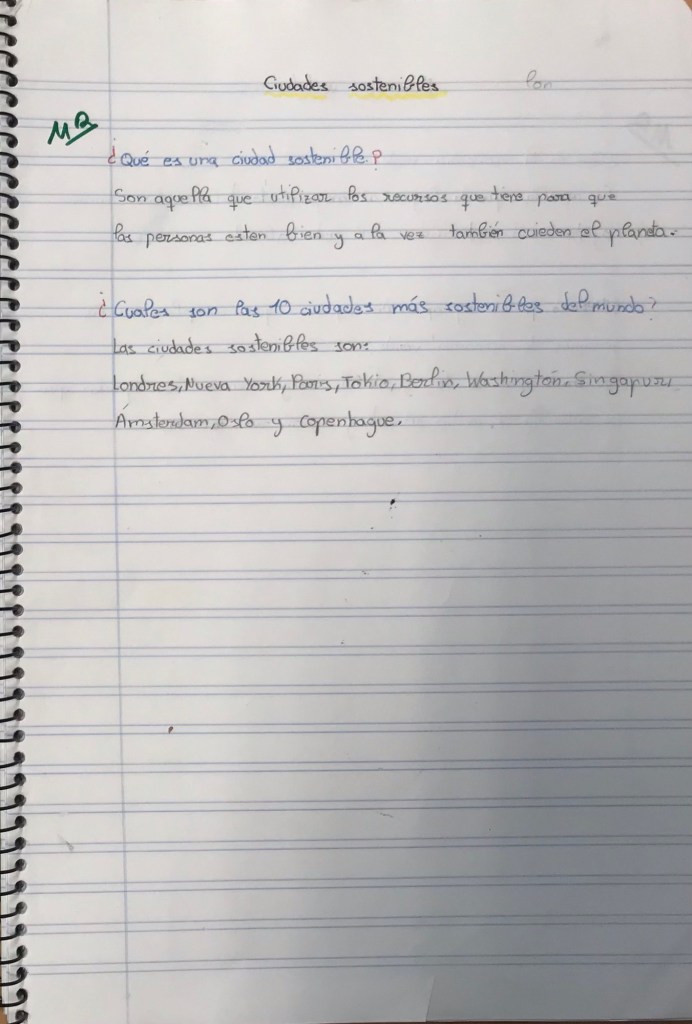 Ciudades sostenibles
MB
¿Qué es una ciudad sostenible?
Son aquella que utilizar los recursos que tiene para que
las personas esten bien y a la vez también cuieden el planeta.
¿Cuales son las 10 ciudades más sostenibles del mundo?
Las ciudades sostenibles son:
Londres, Nueva York, París, Tokio, Berlin, Washington, Singapur,
Ámsterdam, Oslo y Copenhague.